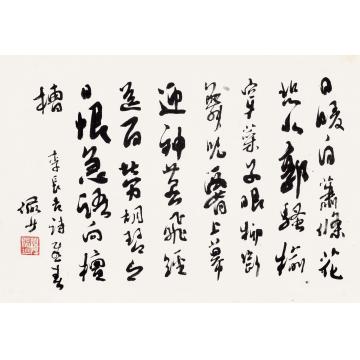 日暖自蕭條花
悲北郭騷榆
穿萊子眼柳斷
舞兒腰上幕
迎神燕飛絲
送百勞胡琴今
日恨急語向檀
槽
李長吉詩感春
儼少